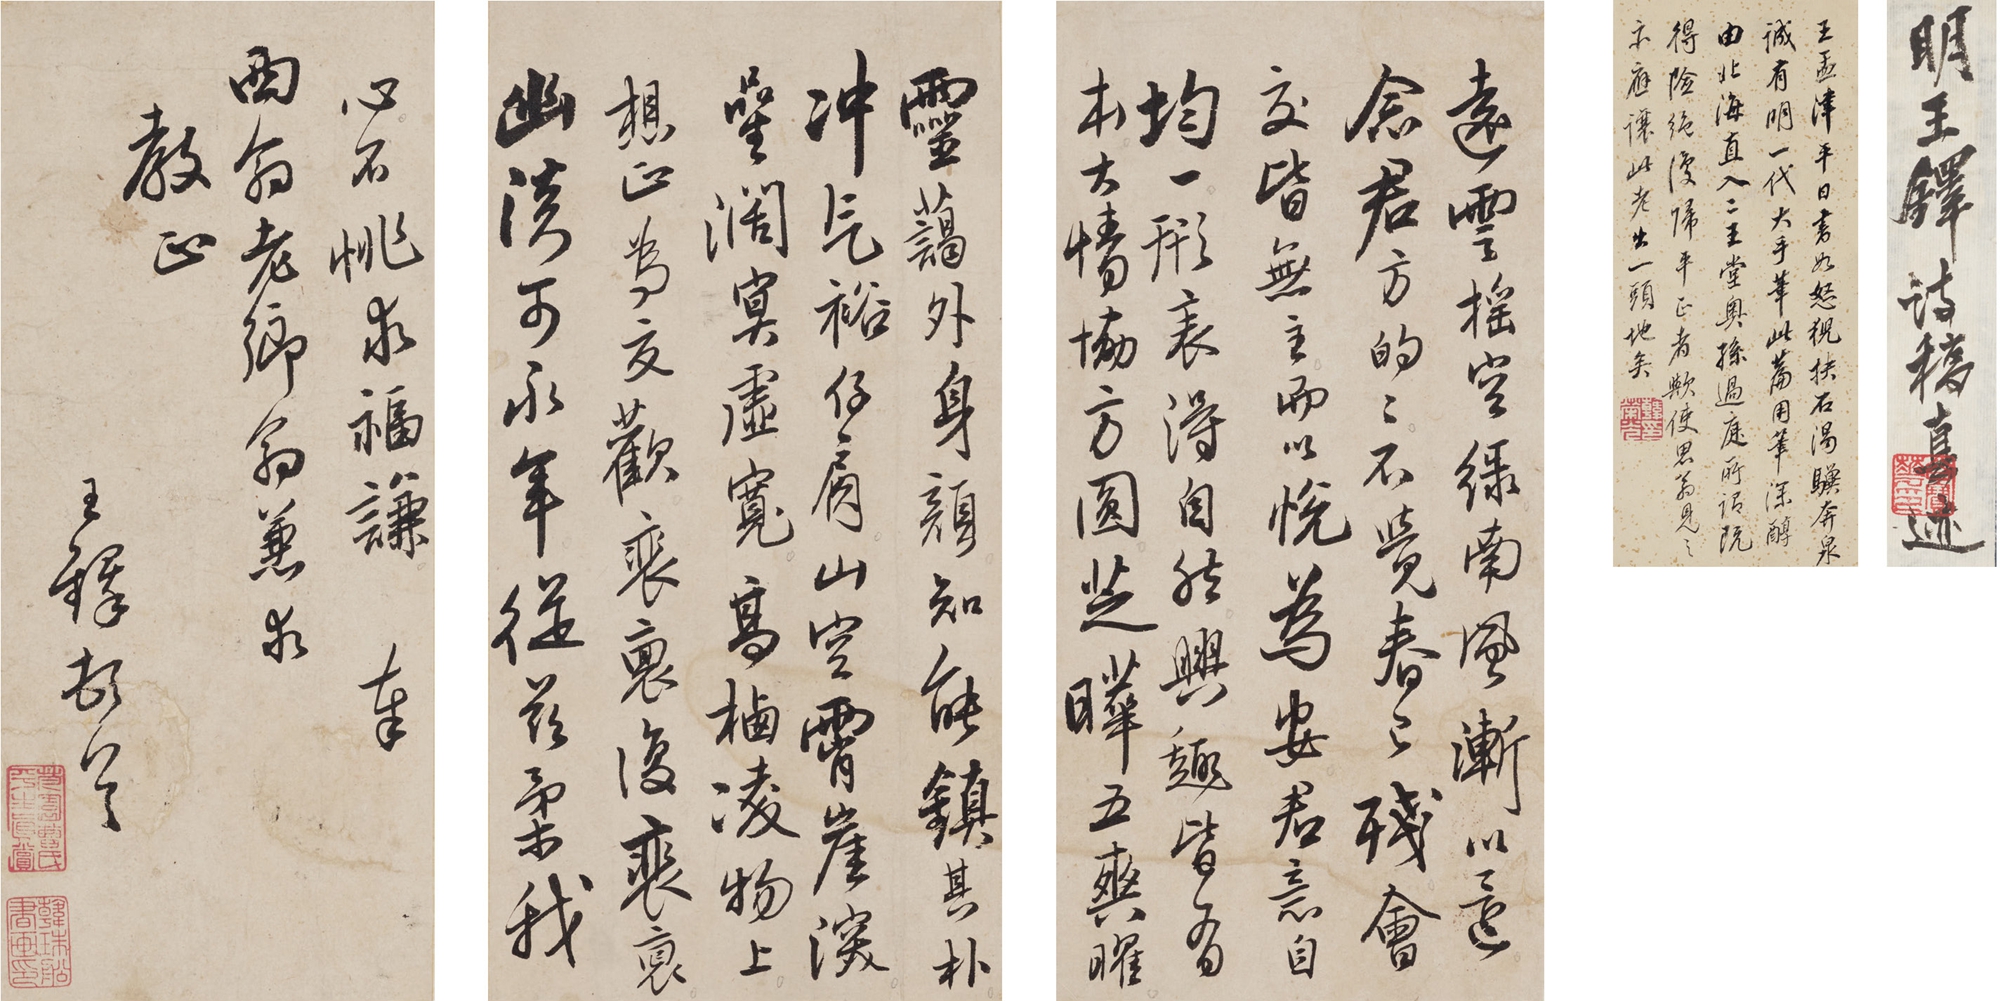 明王鐸诗稿真迹
王孟津平日書如怒猊抉石渴驥奔泉
誠有明一代大手筆此篇用筆深醇
由北海直入二王堂奧孫過庭所謂既
得險絕復歸平正者歟使思翁見之
亦應讓此老出一頭地矣
遠雲搖空綠南風漸以還
念君方的的不覺春已殘會
交皆無主而以悅為安君意自
均一形裹得自然興趣皆有
本大情協方圓芝曄五爽曜
靈藹外身顏知能鎮其朴
冲氣裕仔肩山空霄崖深
星濶寞虛寬高樯凌物上
想正為友歡裴裏復裴裏
幽淡可永年從茲柔我
心石恌求福謙 奉
西翁老鄉翁兼求
教正
王鐸頓首